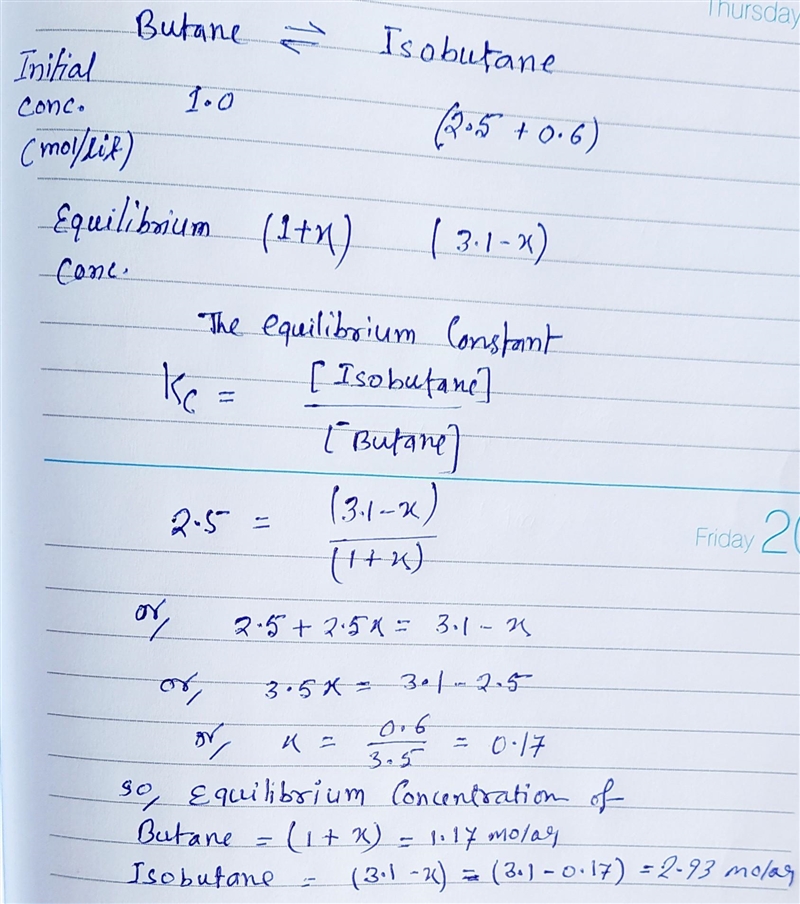 Thursday
Butane ⇌ Isobutane
Initial
conc. 1.0 (2.5 + 0.6)
(mol/lit)
Equilibrium (1+x) (3.1-x)
Conc.
The equilibrium Constant
Kc = [Isobutane]
[Butane]
2.5 = (3.1-x)
(1+x)
Friday 20
or, 2.5 + 2.5x = 3.1 - x
or, 3.5x = 3.1 - 2.5
or, x = 0.6 = 0.17
3.5
so, Equilibrium Concentration of
Butane = (1 + x) = 1.17 molar
Isobutane = (3.1 - x) = (3.1 - 0.17) = 2.93 molar